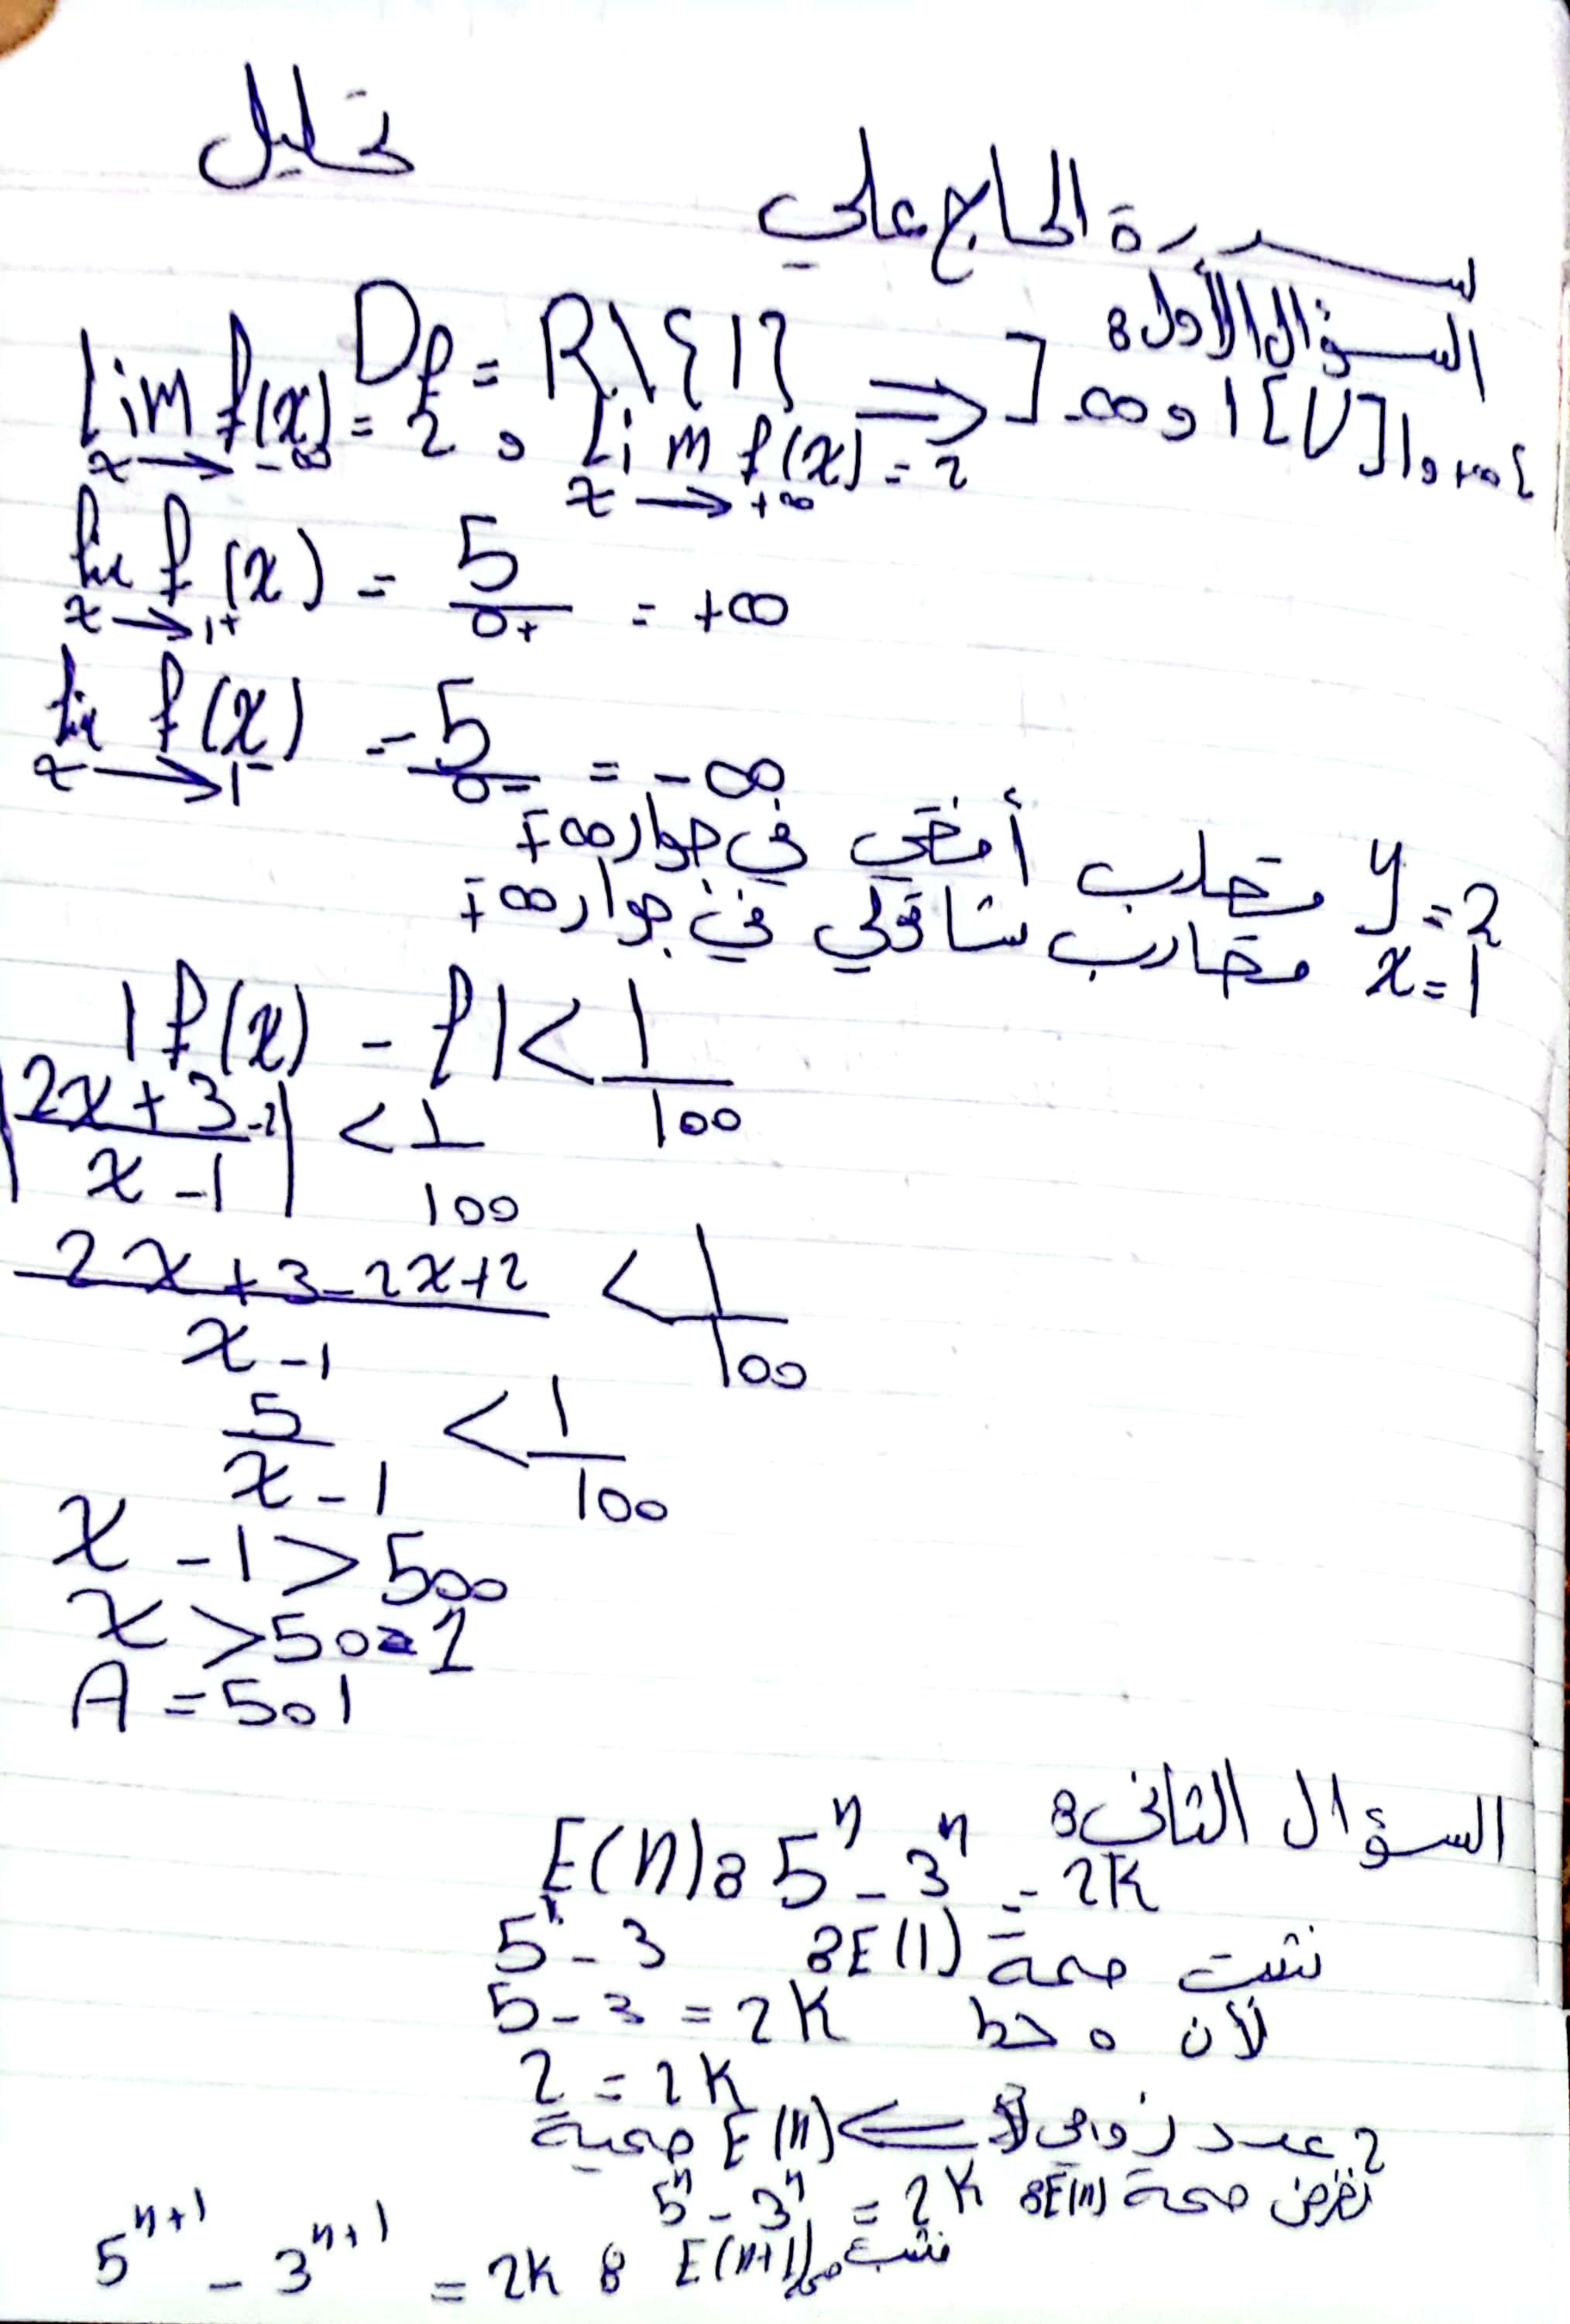 تحليل
سدرة الحاج علي
السؤال الأول:
Df = R\{1} ⇒ ]-∞, 1[ U ]1, +∞[
lim f(x) = 2 , lim f(x) = 2
x → -∞ x → +∞
lim f(x) = 5/0+ = +∞
x → 1+
lim f(x) = 5/0- = -∞
x → 1-
y = 2 مقارب أفقي في جوار ∞±
x = 1 مقارب شاقولي في جوار ∞±
|f(x) - l| < 1/100
|(2x+3)/(x-1) - 2| < 1/100
(2x+3-2x+2)/(x-1) < 1/100
5/(x-1) < 1/100
x - 1 > 500
x > 501
A = 501
السؤال الثاني:
E(n): 5^n - 3^n = 2K
نثبت صحة E(1): 5 - 3
لأن 5 - 3 = 2K
2 = 2K
2 عدد زوجي ⇐ E(n) صحيحة
نفرض صحة E(n): 5^n - 3^n = 2K
نثبت E(n+1): 5^{n+1} - 3^{n+1} = 2K